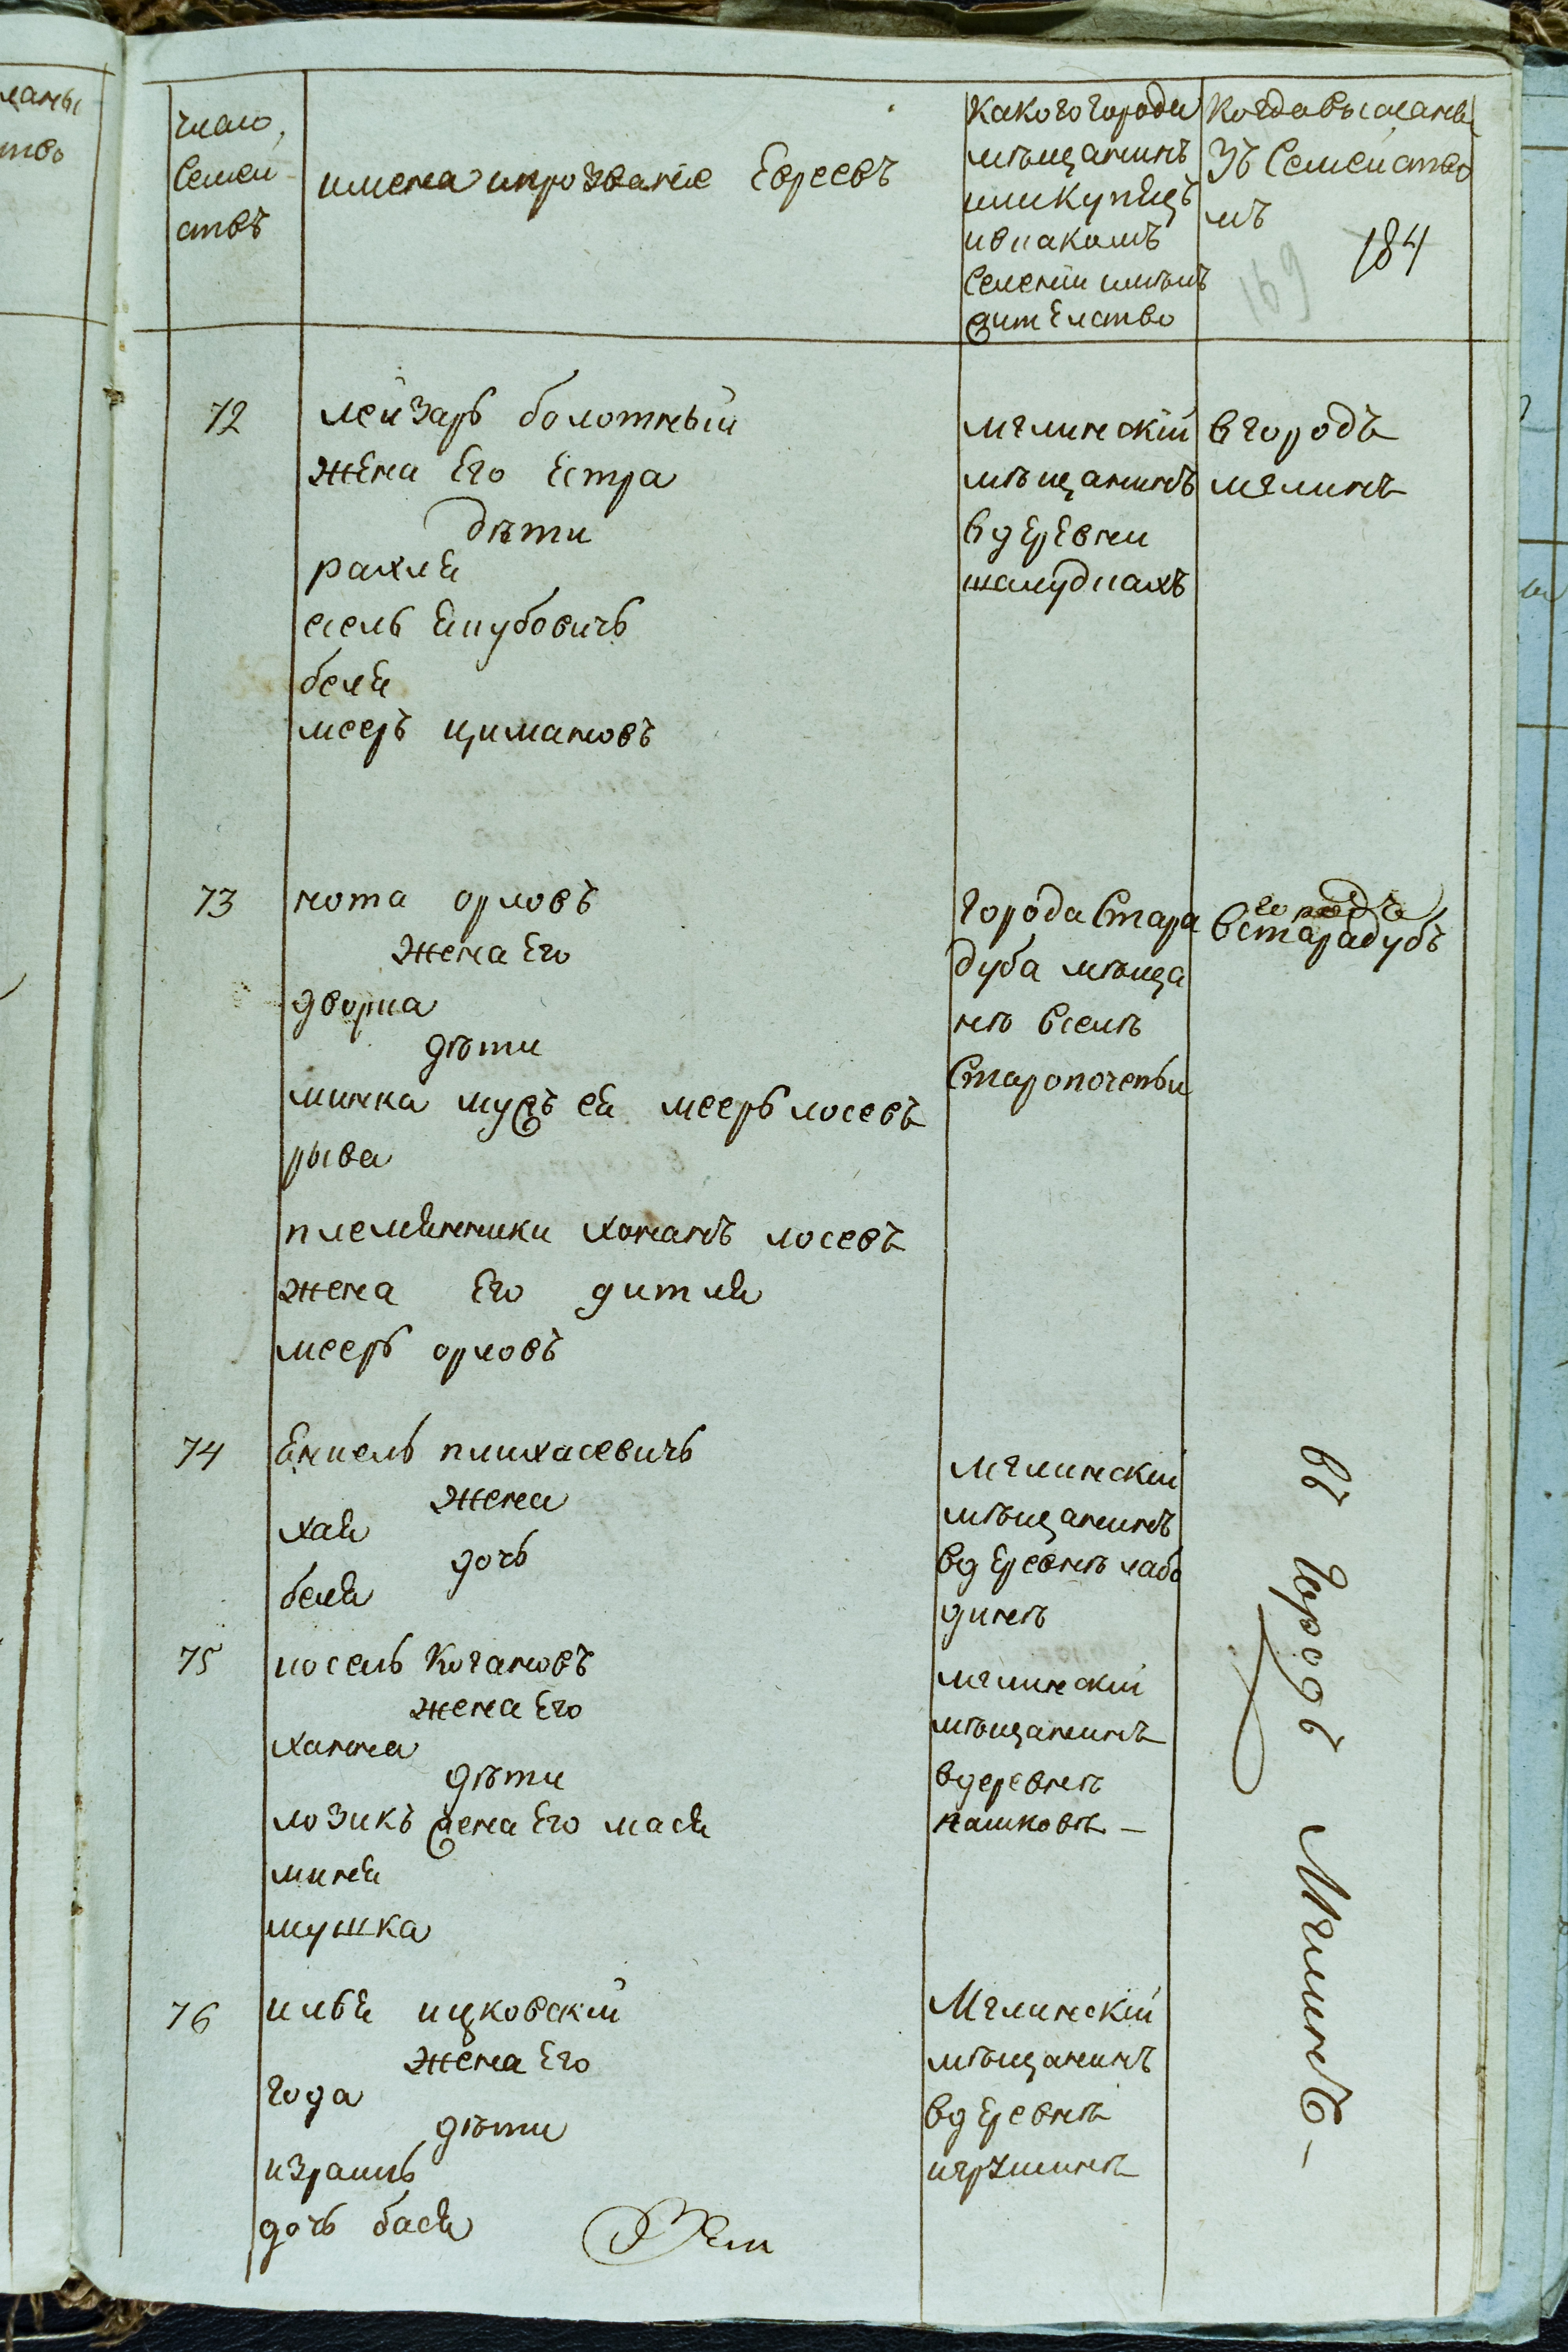 число
Семей
ствъ
имена ипрозваніе Евреевъ
Какого города
мѣщанинъ
или Купецъ
ивкакомъ
Селеніи имѣлъ
жителство
Когда высланы
Зъ Семейство
мъ
184
169
72
лейзаръ болотный
жена Его Естра
дѣти
рахля
есель Якубовичъ
беля
мееръ цимановъ
мглинскій
мѣщанинъ
вдеревни
шалудкахъ
в городъ
мглинъ
73
нота орловъ
жена Его
дворка
дѣти
минка мужъ ея мееръ лосевъ
рыва
племянники хонанъ лосевъ
жена Его дитля
мееръ орловъ
города Стара
дуба мѣща
нѣ вселѣ
Старопочепьи
городъ
встарадубъ
74
пинхасевичъ
жена
хая
дочь
беля
мглинскій
мѣщанинъ
вдеревнѣ лабо
динѣ
75
иосель Когановъ
жена Его
ханна
дѣти
лозикъ жена Его мася
миня
мушка
мглинскій
мѣщанинъ
вдеревнѣ
пашковѣ
76
илья ицковскій
жена Его
года
дѣти
израиль
дочь бася
Мглинскій
мѣщанинъ
вдеревнѣ
въ городъ Мглинъ